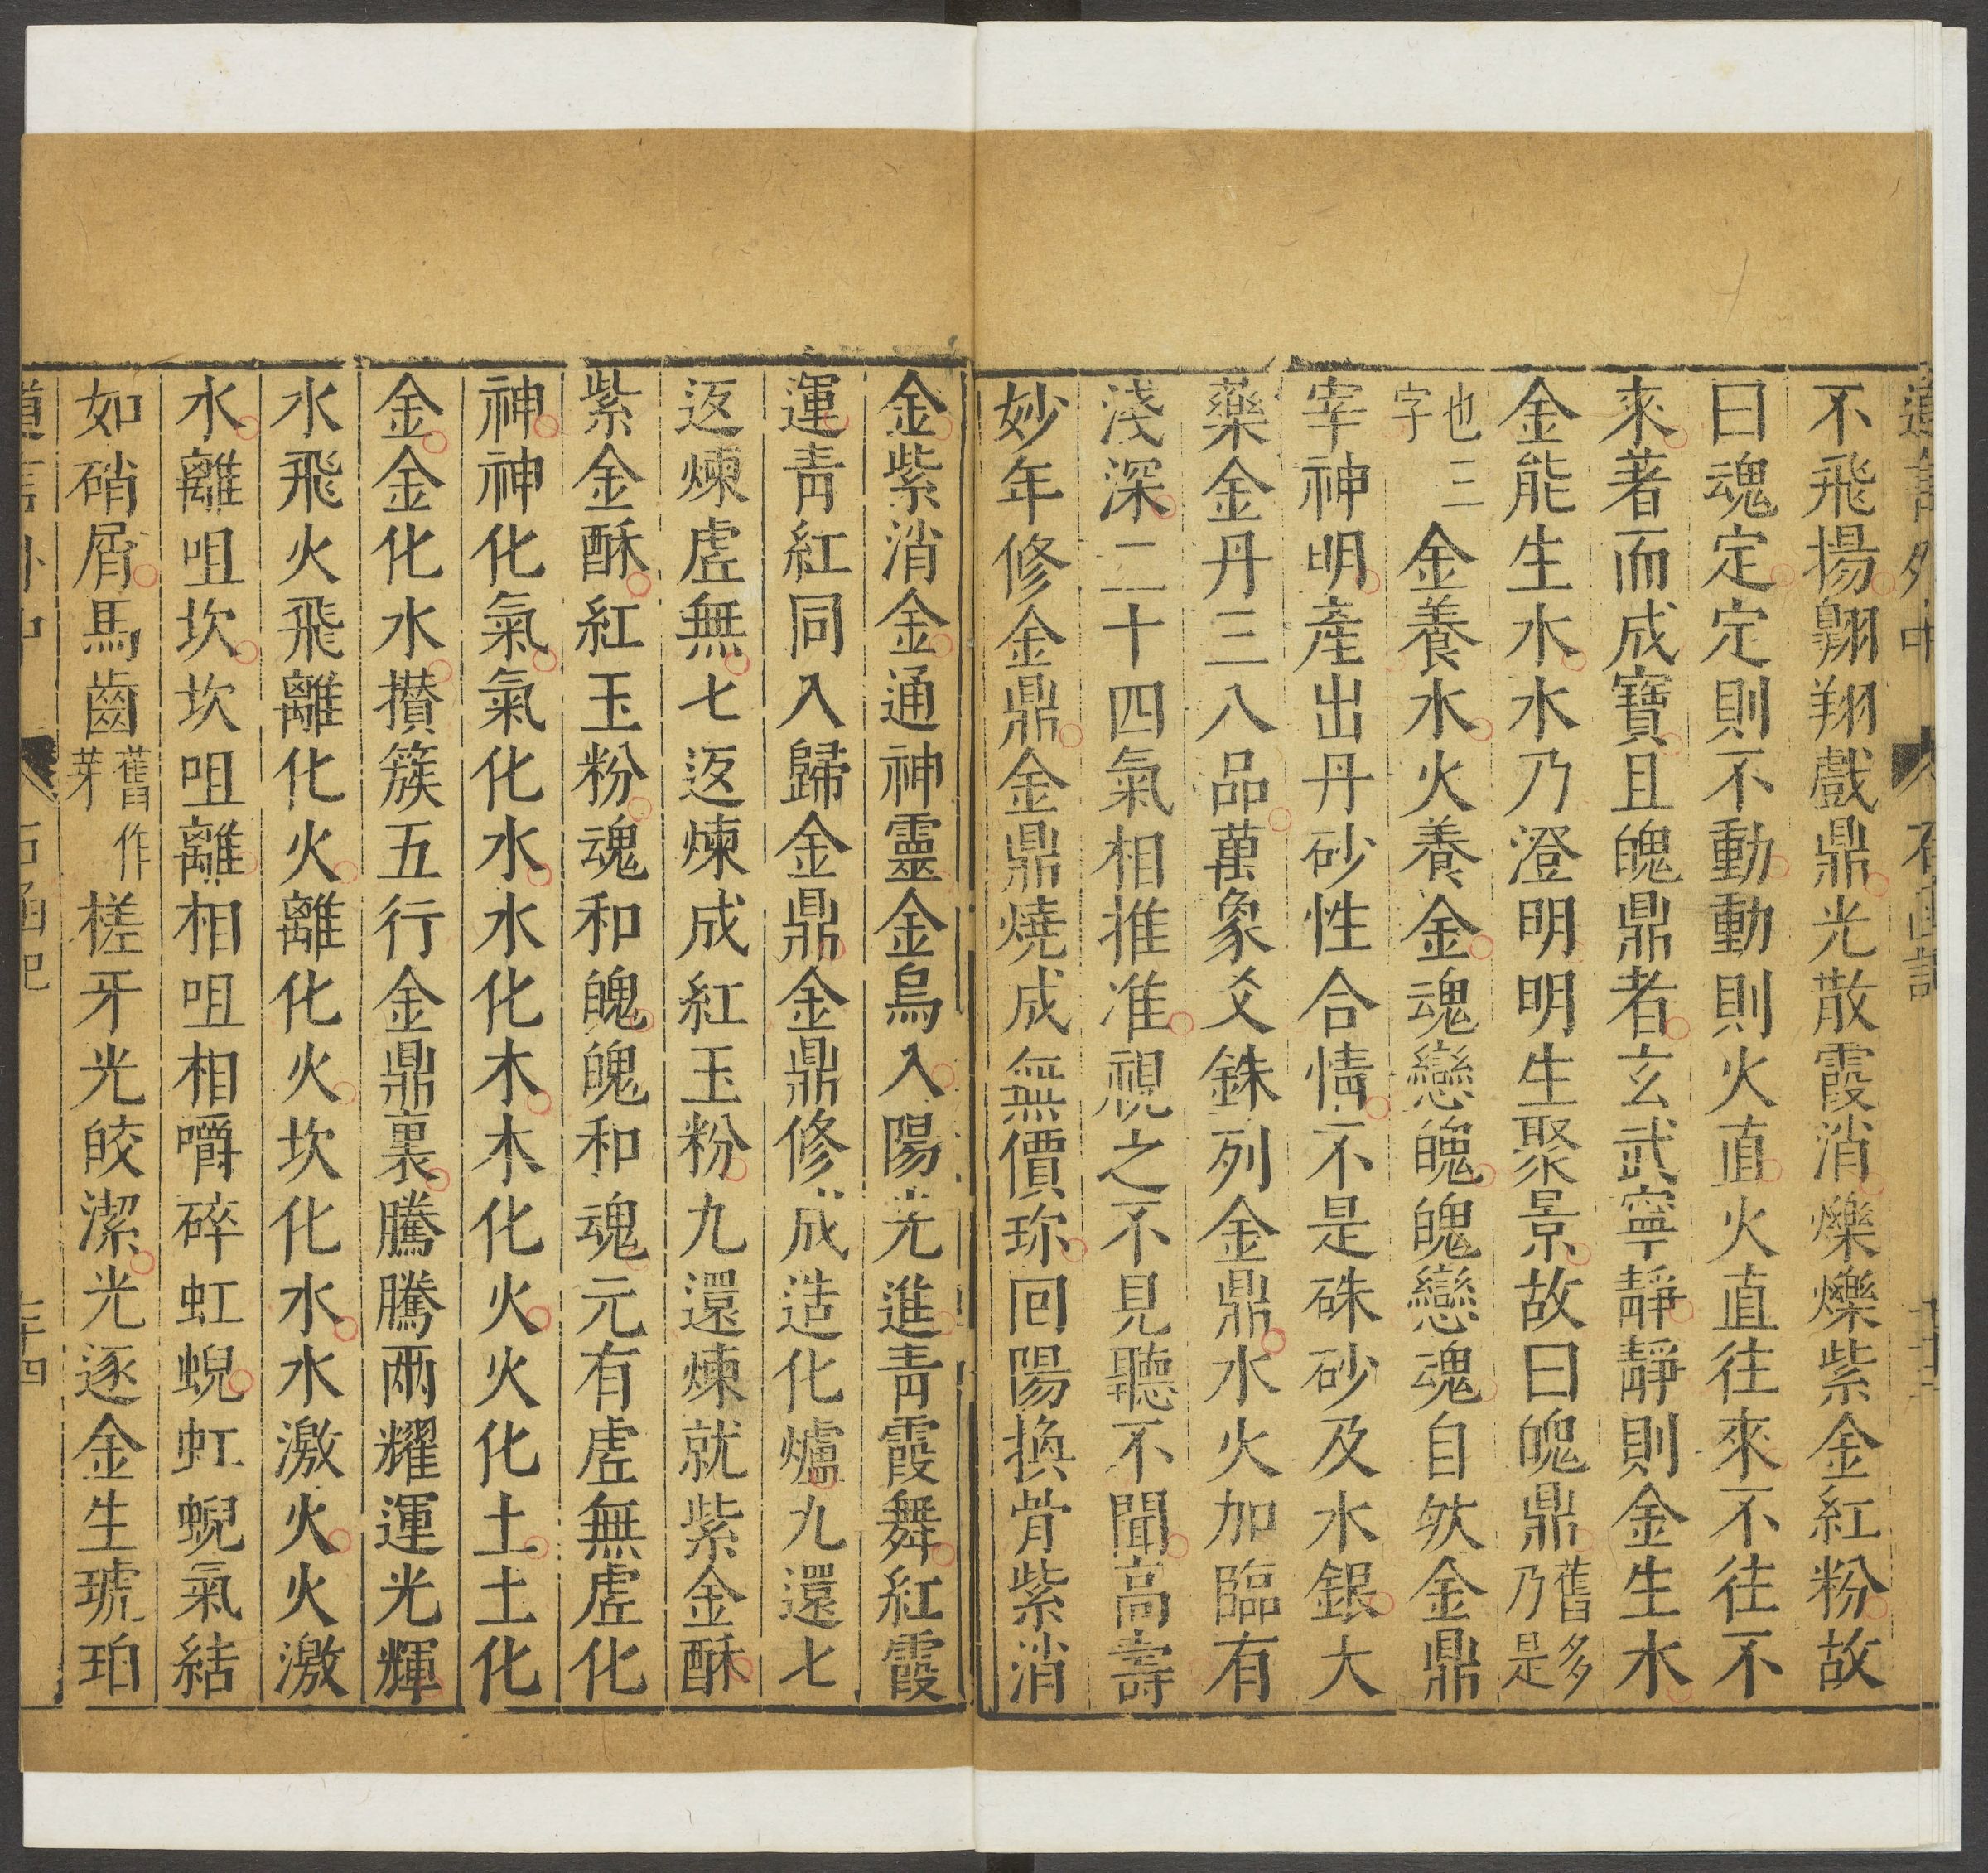 不飛揚翱翔戲鼎光散霞消爍爍紫金紅粉故
曰魂定定則不動動則火直火直往來不往不
來著而成寶且魄鼎者玄武寧靜靜則金生水
金能生水水乃澄明明生聚景故曰魄鼎舊多乃是
也三字金養水火養金魂戀魄魄戀魂自然金鼎
宰神明產出丹砂性合情不是硃砂及水銀大
藥金丹三八品萬象爻銖列金鼎水火加臨有
淺深二十四氣相推准視之不見聽不聞高壽
妙年修金鼎金鼎燒成無價珎回陽換骨紫消
金紫消金通神靈金烏入陽光進青霞舞紅霞
運青紅同入歸金鼎金鼎修成造化爐九還七
返煉虛無七返煉成紅玉粉九還煉就紫金酥
紫金酥紅玉粉魂和魄魄和魂元有虛無虛化
神神化氣氣化水水化木木化火火化土土化
金金化水攢簇五行金鼎裏騰騰兩耀運光輝
水飛火飛離化火離化火坎化水水激火火激
水離咀坎坎咀離相咀相嚼碎虹蜺虹蜺氣結
如硝屑馬齒舊作芽槎牙光皎潔光逐金生琥珀